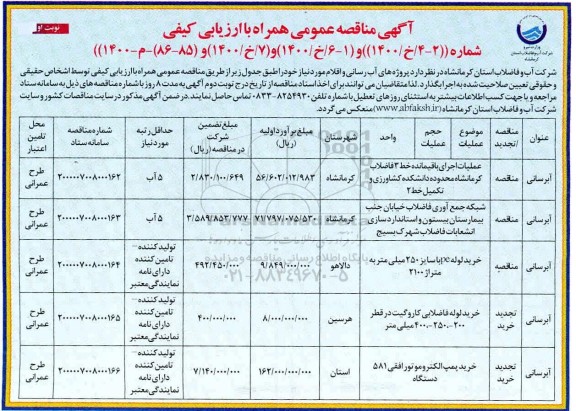 آگهی مناقصه عمومی همراه با ارزیابی کیفی
نوبت او
شماره ((۲-۴/خ/۱۴۰۰)) و ((۱-۶/خ/۱۴۰۰) و (۷/خ/۱۴۰۰) و (۸۵-۸۶)-م-۱۴۰۰))
شرکت آب و فاضلاب استان کرمانشاه در نظر دارد پروژه های آب رسانی و اقلام مورد نیاز خود را طبق جدول زیر از طریق مناقصه عمومی همراه با ارزیابی کیفی توسط اشخاص حقیقی
و حقوقی تعیین صلاحیت شده به اجرا بگذارد. لذا متقاضیان می توانند برای اخذ اسناد مناقصه از تاریخ درج نوبت دوم آگهی به مدت ۸ روز با شماره مناقصه های ذیل به سامانه ستاد
مراجعه و یا جهت کسب اطلاعات بیشتر به استثنای روز های تعطیل با شماره تلفن ۸۲۵۴۹۳۰-۰۸۳ تماس حاصل نمایند. در ضمن آگهی مذکور در سایت مناقصات کشور و سایت
شرکت آب و فاضلاب استان کرمانشاه (www.abfaksh.ir) منعکس می گردد.
عنوان | مناقصه /تجدید | موضوع عملیات | حجم عملیات | واحد | شهرستان | مبلغ برآورد اولیه (ریال) | مبلغ تضمین در مناقصه (ریال) | حداقل رتبه مورد نیاز | شماره مناقصه سامانه ستاد | محل تامین اعتبار
آبرسانی | مناقصه | عملیات اجرای باقیمانده خط ۳ فاضلاب کرمانشاه محدوده دانشکده کشاورزی و تکمیل خط ۲ | کرمانشاه | ۵۶/۶۰۲/۰۱۲/۹۸۳ | ۲/۸۳۰/۱۰۰/۶۴۹ | ۵ آب | ۲۰۰۰۰۰۷۰۰۸۰۰۰۱۶۲ | طرح عمرانی
آبرسانی | مناقصه | شبکه جمع آوری فاضلاب خیابان جنب بیمارستان بیستون و استاندارد سازی انشعابات فاضلاب شهرک بسیج | کرمانشاه | ۷۱/۷۹۷/۰۷۵/۵۳۰ | ۳/۵۸۹/۸۵۳/۷۷۷ | ۵ آب | ۲۰۰۰۰۰۷۰۰۸۰۰۰۱۶۳ | طرح عمرانی
آبرسانی | مناقصه | خرید لوله با سایز ۲۵۰ میلی متر به متراژ ۲۱۰۰ | دالاهو | ۹/۸۴۹/۰۰۰/۰۰۰ | ۴۹۲/۴۵۰/۰۰۰ | تولید کننده– تامین کننده دارای نامه نمایندگی معتبر | ۲۰۰۰۰۰۷۰۰۸۰۰۰۱۶۴ | طرح عمرانی
آبرسانی | تجدید خرید | خرید لوله فاضلابی کاروگیت در قطر ۲۰۰-۲۵۰-۴۰۰ میلی متر | هرسین | ۸/۰۰۰/۰۰۰/۰۰۰ | ۴۰۰/۰۰۰/۰۰۰ | تولید کننده– تامین کننده دارای نامه نمایندگی معتبر | ۲۰۰۰۰۰۷۰۰۸۰۰۰۱۶۵ | طرح عمرانی
آبرسانی | تجدید خرید | خرید پمپ الکتروموتور افقی ۵۸۱ دستگاه | استان | ۱۶۲/۰۰۰/۰۰۰/۰۰۰ | ۷/۱۴۰/۰۰۰/۰۰۰ | تولید کننده– تامین کننده دارای نامه نمایندگی معتبر | ۲۰۰۰۰۰۷۰۰۸۰۰۰۱۶۶ | طرح عمرانی
پایگاه اطلاع رسانی مناقصه و مزایده
۰۲۱-۸۸۳۴۹۶۷۰-۵